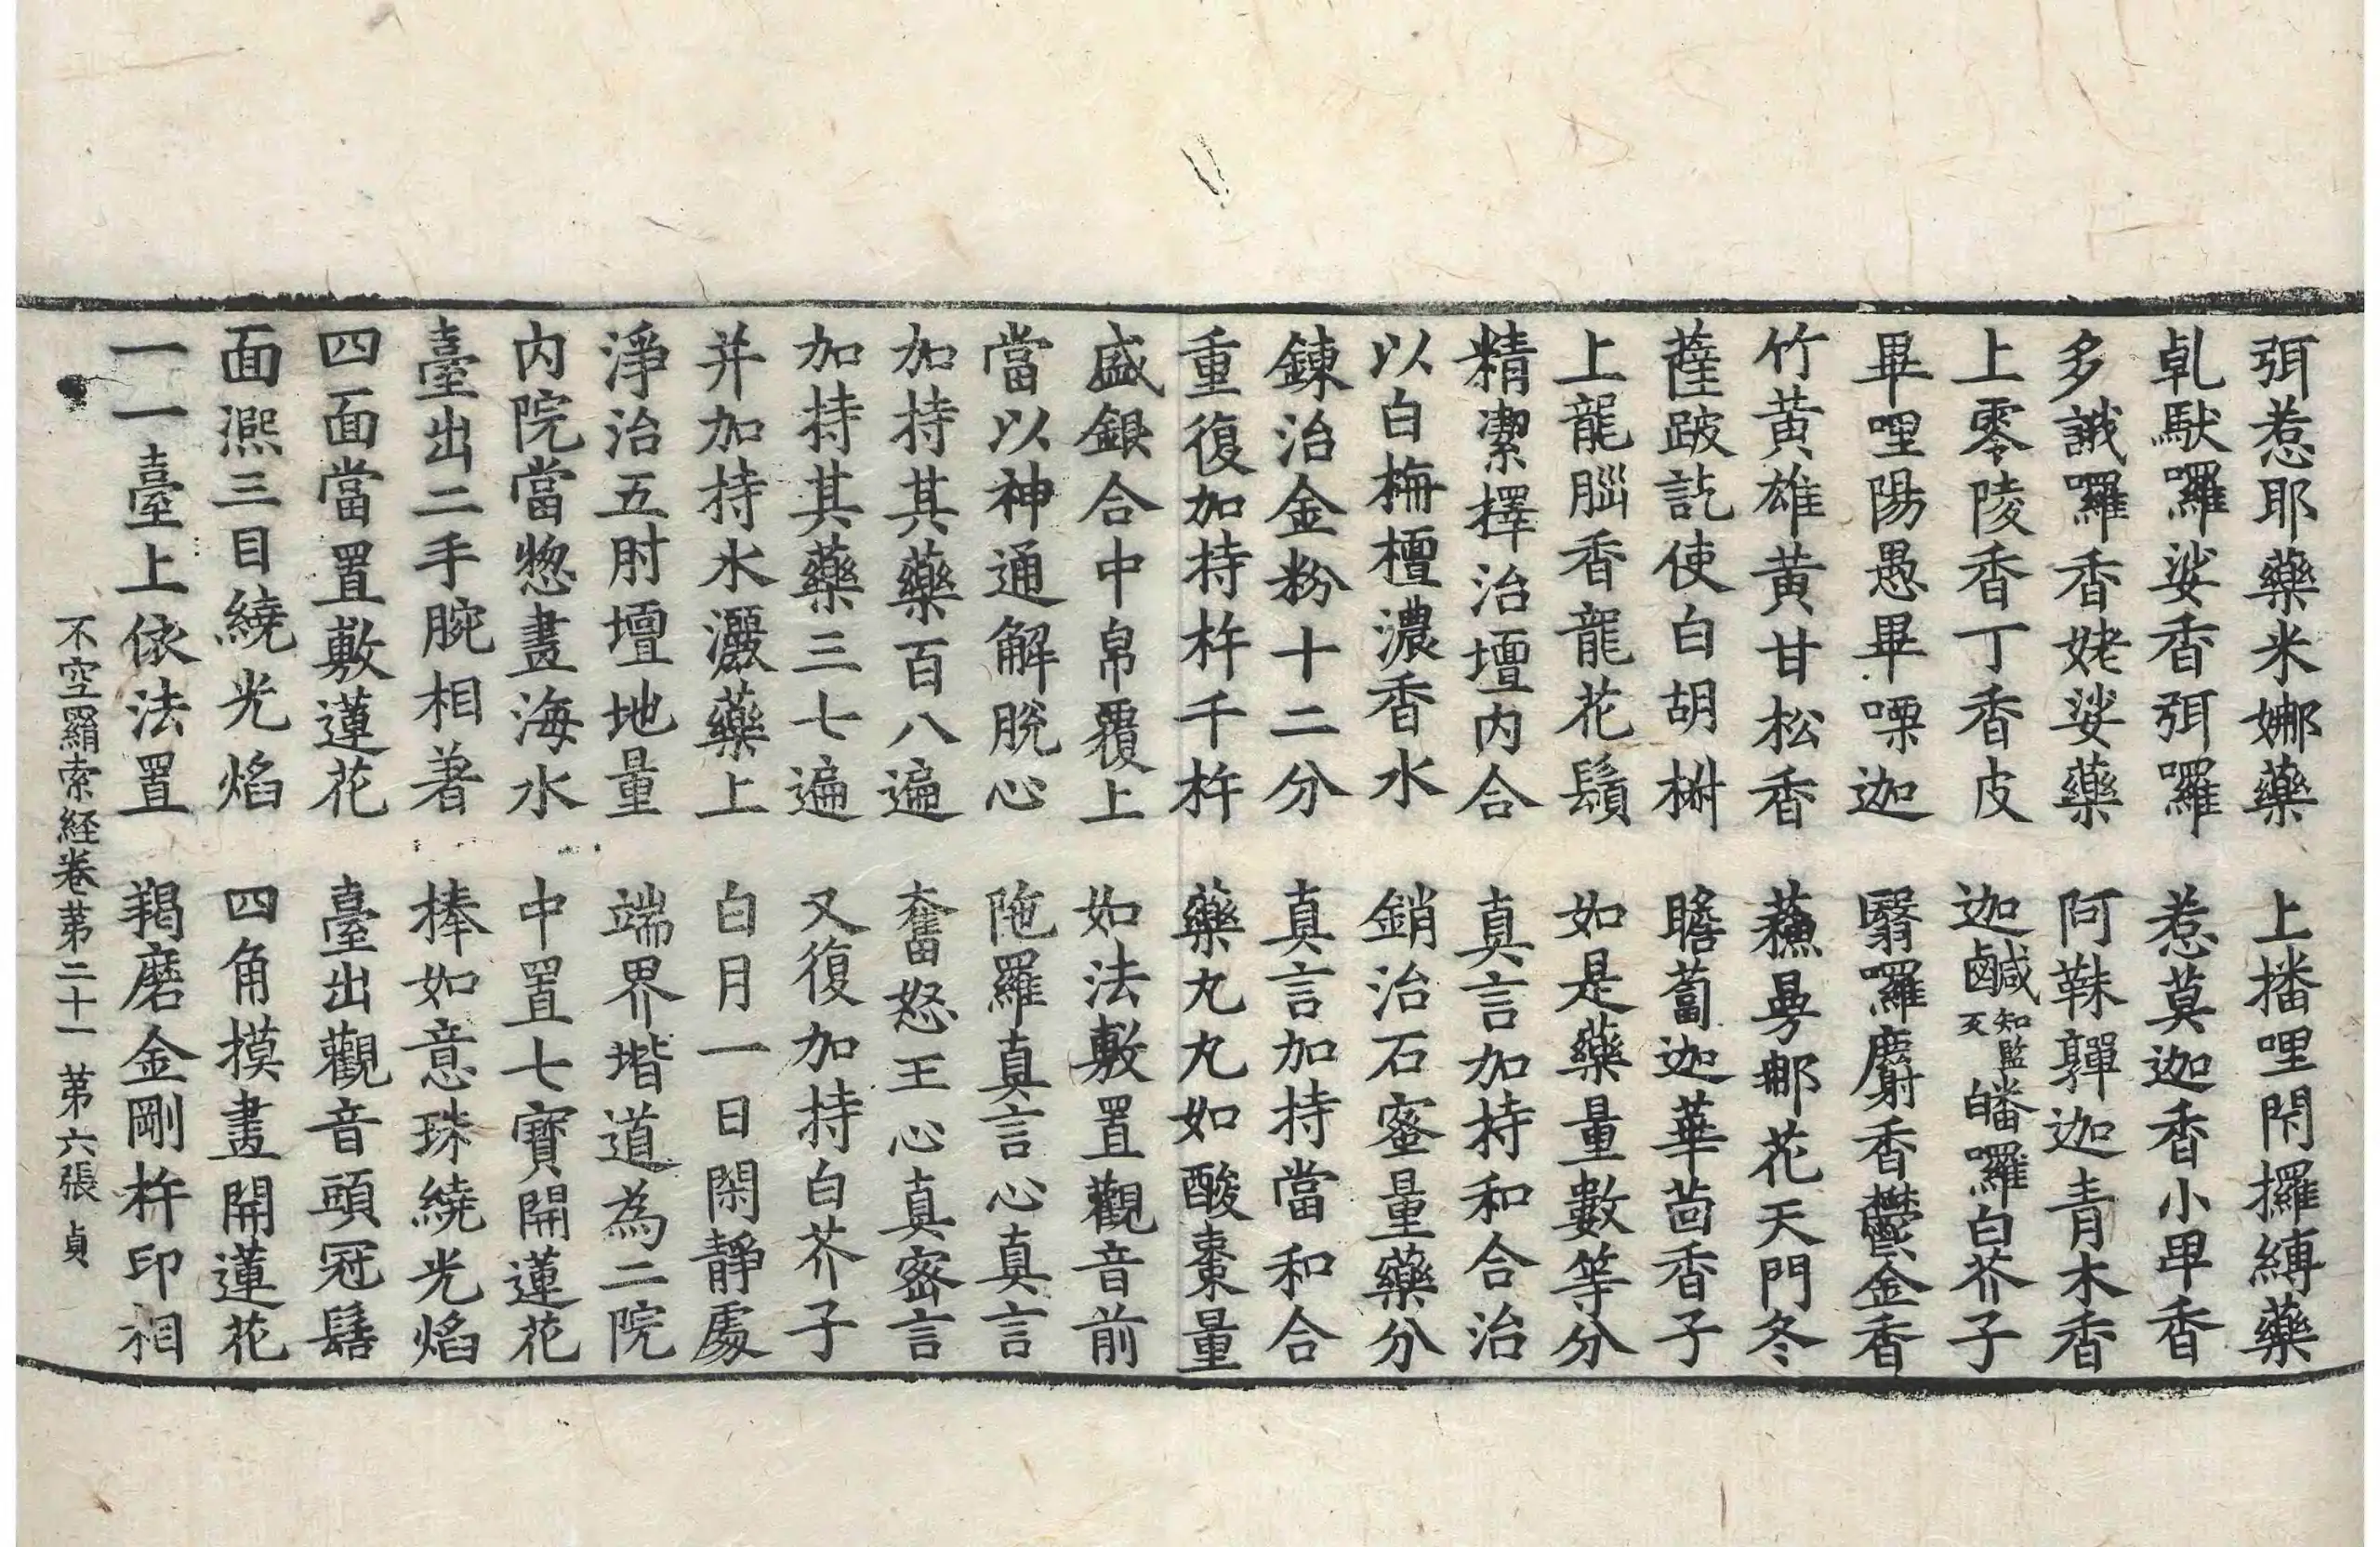 弭惹耶藥米娜藥　上播哩閇攞縛藥
乹馱囉娑香弭囉　惹莫迦香小甲香
多誐囉香姥娑藥　阿靺鞸迦青木香
上零陵香丁香皮　迦鹹知監反皤囉白芥子
畢哩陽愚畢㗚迦　翳囉麝香鬱金香
竹黃雄黃甘松香　蘓曼那花天門冬
薩跛訖使白胡椒　瞻蔔迦華茴香子
上龍腦香龍花鬚　如是藥量數等分
精潔擇治壇內合　真言加持和合治
以白栴檀濃香水　銷治石蜜量藥分
鍊治金粉十二分　真言加持當和合
重復加持杵千杵　藥丸丸如酸棗量
盛銀合中帛覆上　如法敷置觀音前
當以神通解脫心　陁羅真言心真言
加持其藥百八遍　奮怒王心真密言
加持其藥三七遍　又復加持白芥子
并加持水灑藥上　白月一日閑靜處
淨治五肘壇地量　端界揩道為二院
內院當惣畫海水　中置七寶開蓮花
臺出二手腕相著　捧如意珠繞光焰
四面當置敷蓮花　臺出觀音頭冠鬘
面㷫三目繞光焰　四角摸畫開蓮花
一一臺上依法置　羯磨金剛杵印相
不空羂索経卷第二十一　第六張　貞